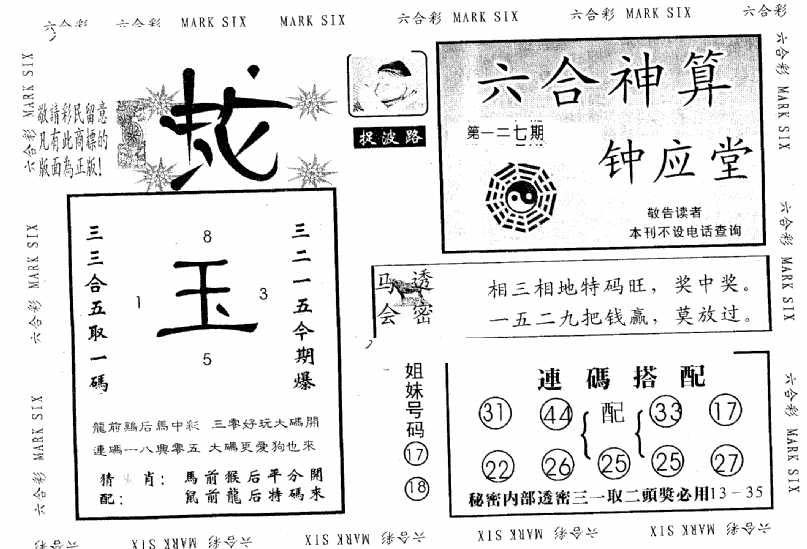 六合彩 MARK SIX MARK SIX 六合彩 MARK SIX 六合彩 MARK SIX 六合彩
敬請彩民留意
凡有此商標的
版面為正版!
捉波路
六合神算
第一二七期
钟应堂
敬告读者
本刊不设电话查询
三三合五取一碼
8
1 玉 3
5
三二一五今期爆
龍前鷄后馬中彩 三零好玩大碼開
連碼一八與零五 大碼更愛狗也來
猜 肖: 馬前猴后平分開
配: 鼠前龍后特碼來
马会透密
相三相地特码旺,奖中奖。
一五二九把钱赢,莫放过。
姐妹号码
17
18
連碼搭配
31 44 配 33 17
22 26 25 25 27
秘密内部透密三一取二頭獎必用13-35
六合彩 MARK SIX
六合彩 MARK SIX
六合彩 MARK SIX
六合彩 MARK SIX
六合彩 MARK SIX
六合彩 MARK SIX
六合彩 MARK SIX
六合彩 MARK SIX 六合彩 MARK SIX 六合彩 MARK SIX 六合彩 MARK SIX 六合彩